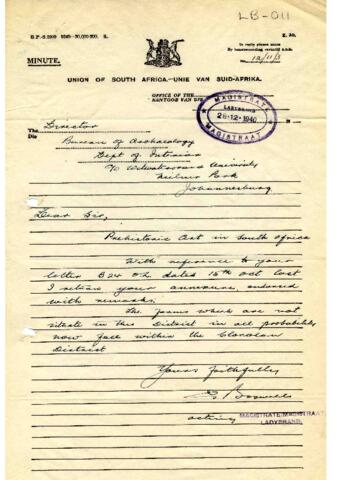 LB-011
G.P.-S.
Z. 30.
In reply please quote
12/11/3
MINUTE.
UNION OF SOUTH AFRICA.—UNIE VAN SUID-AFRIKA.
OFFICE OF THE
KANTOOR VAN DIE
MAGISTRAAT
LADYBRAND
28-12-1940
MAGISTRAAT
The Director
Die
Bureau of Archaeology
Dept of Interior
c/o Witwatersrand University
Milner Park
Johannesburg
Dear Sir,
Prehistoric Art in South Africa
With reference to your
letter B24 dated 15th Oct last
I return your annexure, endorsed
with remarks.
The farms which are not
situate in this District in all probability
now fall within the Clocolan
District
Yours faithfully
acting MAGISTRATE/MAGISTRAAT
LADYBRAND.